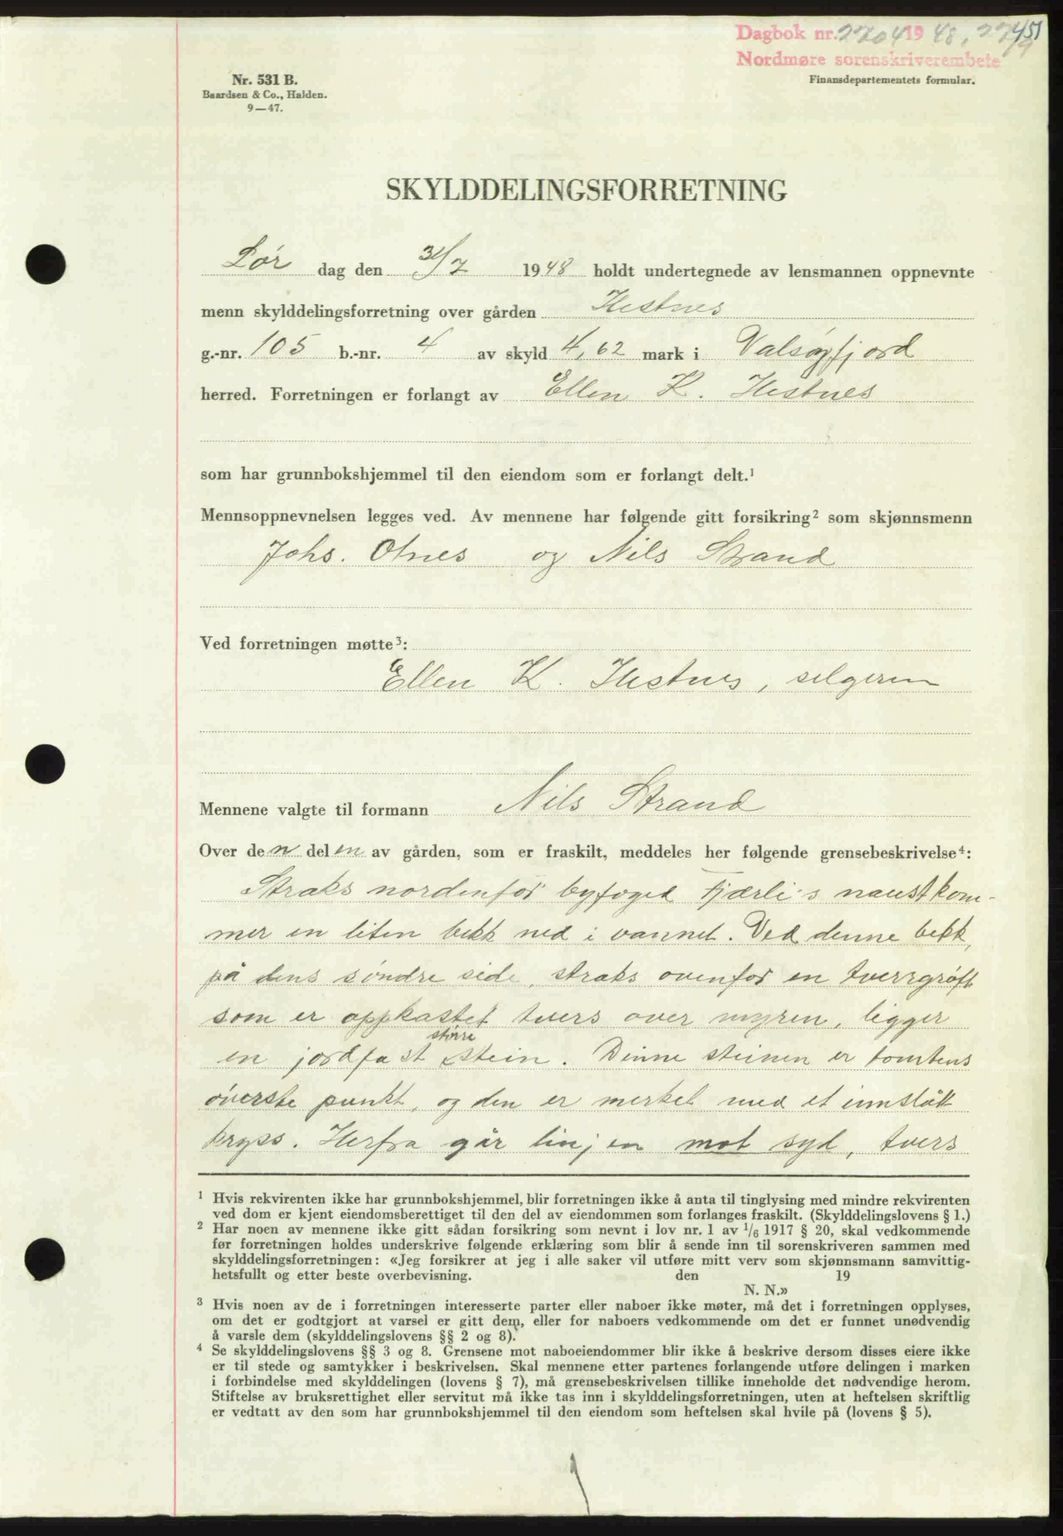 Dagbok nr. 2204 1948, 22/9
451
Nordmøre sorenskriverembete
Finansdepartementets formular.
Nr. 531 B.
Baardsen & Co., Halden.
9—47.
SKYLDDELINGSFORRETNING
Lør dag den 31/7 1948 holdt undertegnede av lensmannen oppnevnte
menn skylddelingsforretning over gården Hestnes
g.-nr. 105 b.-nr. 4 av skyld 4,62 mark i Valsøyfjord
herred. Forretningen er forlangt av Ellen K. Hestnes
som har grunnbokshjemmel til den eiendom som er forlangt delt.¹
Mennsoppnevnelsen legges ved. Av mennene har følgende gitt forsikring² som skjønnsmenn
Johs. Otnes og Nils Strand
Ved forretningen møtte³:
Ellen K. Hestnes, selgeren
Mennene valgte til formann Nils Strand
Over den delen av gården, som er fraskilt, meddeles her følgende grensebeskrivelse⁴:
Straks nordenfor byfoged Fjærli's naust kom-
mer en liten bekk ned i vannet. Ved denne bekk,
på dens søndre side, straks ovenfor en tverrgrøft
som er oppkastet tvers over myren, ligger
en jordfast større stein. Denne steinen er tomtens
øverste punkt, og den er merket med et innslått
kryss. Herfra går linjen mot syd, tvers
¹ Hvis rekvirenten ikke har grunnbokshjemmel, blir forretningen ikke å anta til tinglysing med mindre rekvirenten
ved dom er kjent eiendomsberettiget til den del av eiendommen som forlanges fraskilt. (Skylddelingslovens § 1.)
² Har noen av mennene ikke gitt sådan forsikring som nevnt i lov nr. 1 av 1/6 1917 § 20, skal vedkommende
før forretningen holdes underskrive følgende erklæring som blir å sende inn til sorenskriveren sammen med
skylddelingsforretningen: «Jeg forsikrer at jeg i alle saker vil utføre mitt verv som skjønnsmann samvittig-
hetsfullt og etter beste overbevisning. den 19
N. N.»
³ Hvis noen av de i forretningen interesserte parter eller naboer ikke møter, må det i forretningen opplyses,
om det er godtgjort at varsel er gitt dem, eller for naboers vedkommende om det er funnet unødvendig
å varsle dem (skylddelingslovens §§ 2 og 8).
⁴ Se skylddelingslovens §§ 3 og 8. Grensene mot naboeiendommer blir ikke å beskrive dersom disses eiere ikke
er til stede og samtykker i beskrivelsen. Skal mennene etter partenes forlangende utføre delingen i marken
i forbindelse med skylddelingen (lovens § 7), må grensebeskrivelsen tillike inneholde det nødvendige herom.
Stiftelse av bruksrettighet eller servitut må ikke tas inn i skylddelingsforretningen, uten at heftelsen skriftlig
er vedtatt av den som har grunnbokshjemmel til den eiendom som heftelsen skal hvile på (lovens § 5).